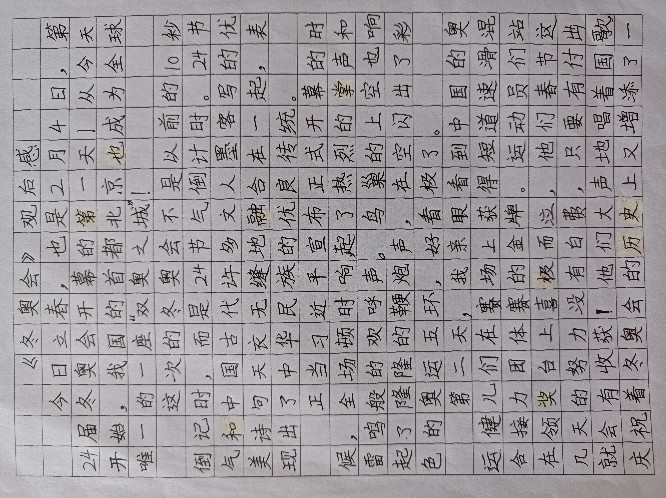 《冬奥会》观后感
今日立春,也是2月4日,第
24届冬奥会开幕的第一天—从今天
开始,我国的首都北京也成为全球
唯一的一座“双奥之城”!
这次冬奥会不是以前的10秒
倒记时,而是24节气倒计时。24节
气和中国古代许多文人墨客写的优
美诗句天衣无缝地融合在一起,表
现出了中华民族的优良传统。
正当习近平宣布正式开幕的时
候,全场顿时响起了热烈的掌声和
雷鸣般的欢呼声。鸟巢的上空也响
起了隆隆的鞭炮声,在空闪出了彩
色的奥运五环,好看极了。
第二天,我亲眼看到中国的奥
运健儿们在赛场上获得短道速滑混
合接力团体赛的金牌。运动员们站
在领奖台上喜极而泣,他们春节这
几天的努力没有白费,只要有付出
就会有收获!他们大声地唱着国歌
庆祝着冬奥会的历史上又增添了一